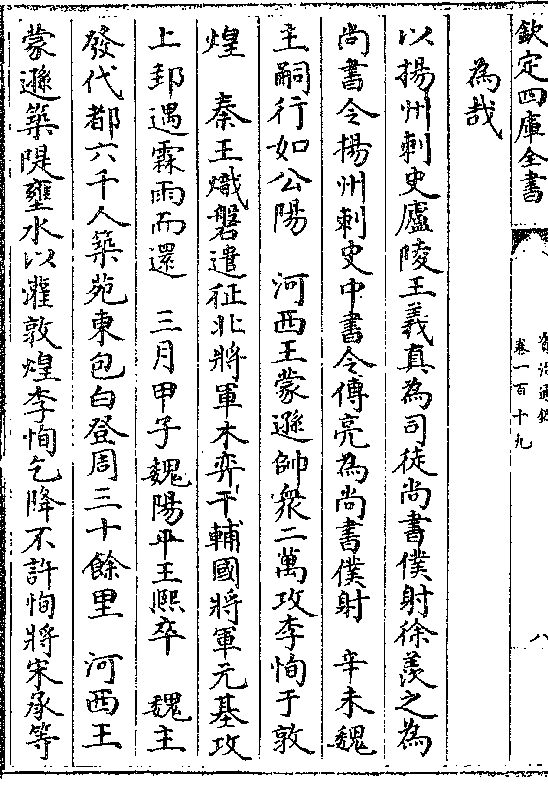 欽定四庫全書
資治通鑑
卷一百十九
八
為哉
以揚州刺史廬陵王義真為司徒尚書僕射徐羨之為
尚書令揚州刺史中書令傅亮為尚書僕射 辛未魏
主嗣行如公陽 河西王蒙遜帥衆二萬攻李恂于敦
煌 秦王熾磐遣征北將軍木弈干輔國將軍元基攻
上邽遇霖雨而還 三月甲子魏陽平王熙卒 魏主
發代都六千人築苑東包白登周三十餘里 河西王
蒙遜築隄壅水以灌敦煌李恂乞降不許恂將宋承等